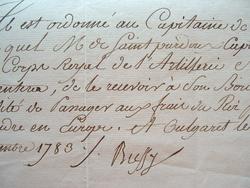 Il est ordonné au Capitaine de
quel M. de Saint
Corps Royal de l'Artillerie
de le recevoir à Son Bord
de Passager aux frais du Roi
en Europe. A Oulgaret le
mbre 1783 ./.
Bussy